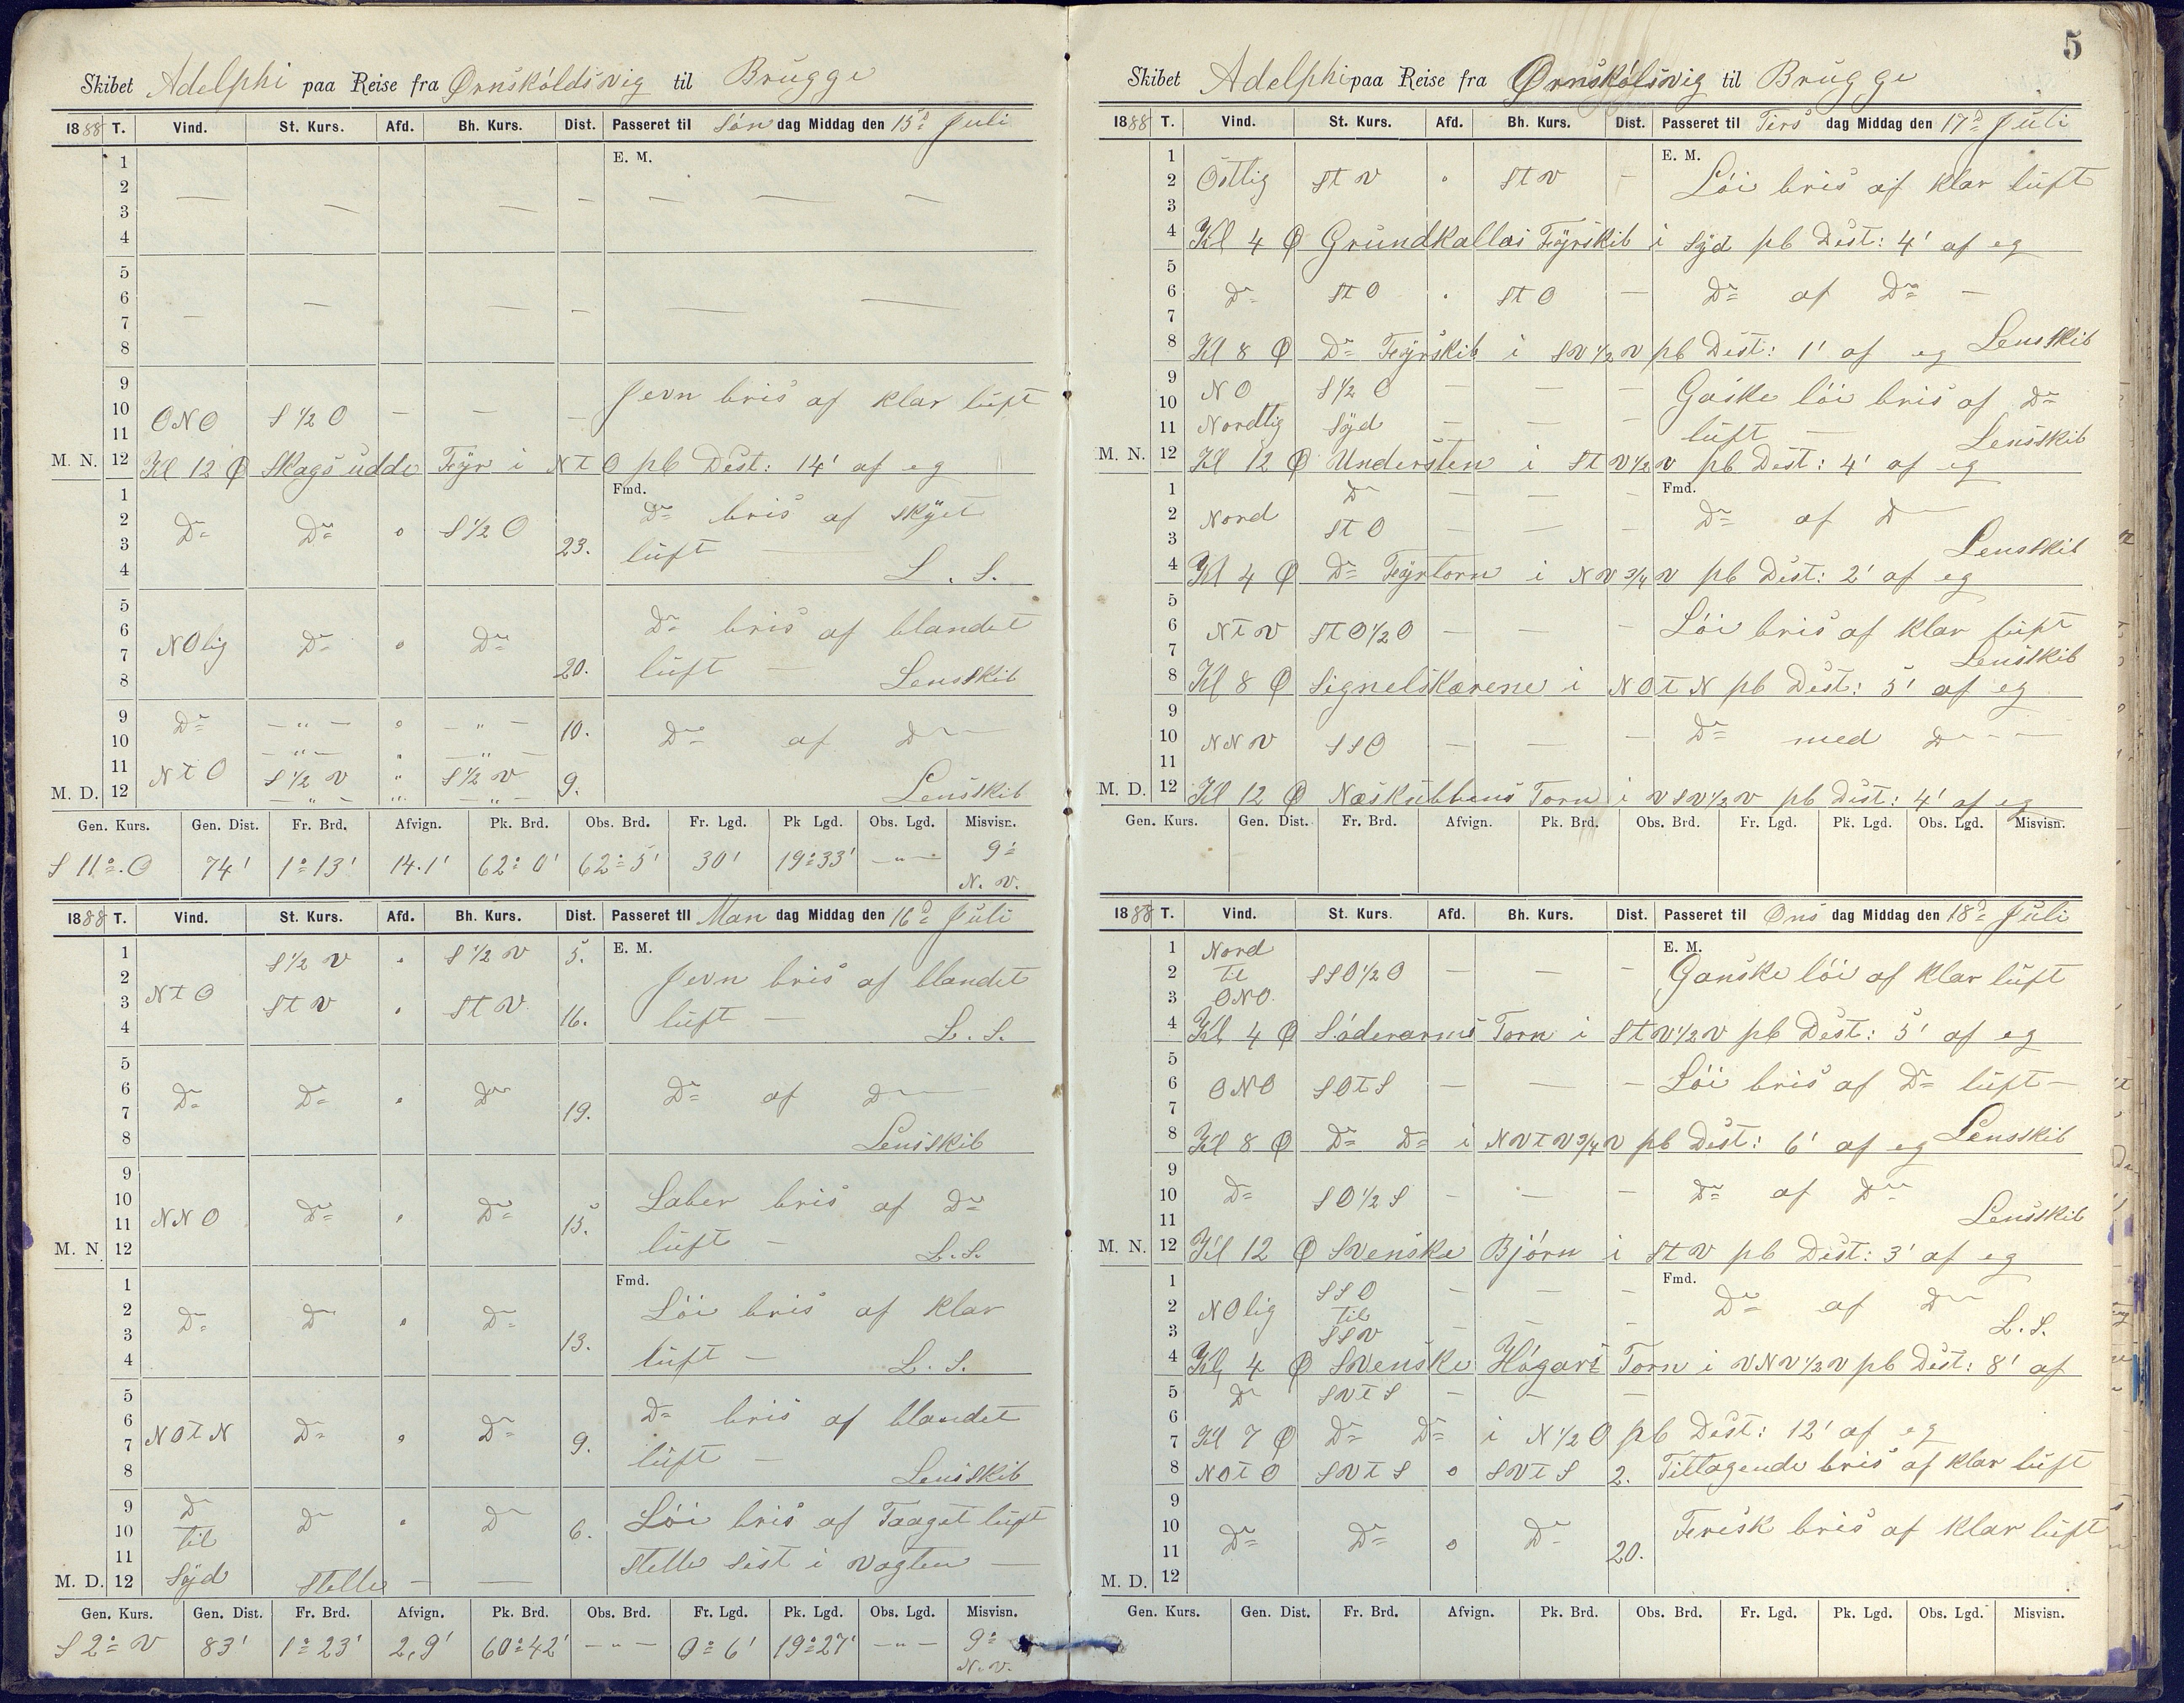 Skibet Adelphi paa Reise fra Ørnsköldsvig til Brugge
1888 T. Vind. St. Kurs. Afd. Bh. Kurs. Dist. Passeret til Søn dag Middag den 15d Juli
1 E. M.
2 — — — — — — —
3
4
5
6 — — — — — —
7
8
9 Jevn bris af klar luft
10 ONO S ½ O — — —
11
M. N. 12 Kl 12 Ø Skags udde Fyr i N t O pb Dest: 14' af eg
1 Fmd.
2 Do Do o S ½ O Do bris af skyet
3 23. luft —
4 L. S.
5
6 NOlig Do o Do Do bris af blandet
7 20. luft —
8 Lensskib
9 Do — " — o — " — 10. Do af Do
10 — " — " — " —
11 N t O S ½ V " S ½ V 9.
M. D. 12 — " — " — " — Lensskib
Gen. Kurs. Gen. Dist. Fr. Brd. Afvign. Pk. Brd. Obs. Brd. Fr. Lgd. Pk Lgd. Obs. Lgd. Misvisn.
S 11° O 74' 1° 13' 14.1' 62° 0' 62° 5' 30' 19° 33' — " — 9° N. V.
1888 T. Vind. St. Kurs. Afd. Bh. Kurs. Dist. Passeret til Man dag Middag den 16d Juli
1 S ½ V o S ½ V 5. E. M.
2 Jevn bris af blandet
3 N t O St V o St V 16. luft —
4 L. S.
5
6 Do Do o Do Do af Do
7 19.
8 Lensskib
9
10 Laber bris af Do
11 NNO Do o Do 15. luft —
M. N. 12 L. S.
1 Fmd.
2 Do Do o Do Löi bris af klar
3 13.
4 luft — L. S.
5
6 NOtN Do o Do Do bris af blandet
7 9. luft —
8 Lensskib
9 Do
10 til Do o Do 6. Löi bris af Taaget luft
11 stelle sist i vagten —
M. D. 12 Syd Stelle — —
Gen. Kurs. Gen. Dist. Fr. Brd. Afvign. Pk. Brd. Obs. Brd. Fr. Lgd. Pk. Lgd. Obs. Lgd. Misvisn.
S 2° V 83' 1° 23' 2,9' 60° 42' — " — 0° 6' 19° 27' — " — 9° N. V.
5
Skibet Adelphi paa Reise fra Ørnskölsvig til Brugge
1888 T. Vind. St. Kurs. Afd. Bh. Kurs. Dist. Passeret til Tirs dag Middag den 17d Juli
1 E. M.
2 Östlig St V o St V — Löi bris af klar luft
3
4 Kl 4 Ø Grundkallas Fyrskib i Syd pb Dest: 4' af eg
5
6 Do St O . St O — Do af Do —
7
8 Kl 8 Ø Do Fyrskib i SV ½ V pb Dest: 1' af eg Lensskib
9 NO S ½ O — — — Gaske löi bris af Do
10
11 Nordlig Syd — — — luft —
M. N. 12 Kl 12 Ø Understen i St V ½ V pb Dest: 4' af eg Lensskib
1 Do — — — Fmd.
2 Nord Do af Do
3 St O — — —
4 Kl 4 Ø Do Fyrtorn i NV ¾ V pb Dest: 2' af eg Lensskib
5
6 NtV StO ½ O — — — Löi bris af klar luft
7
8 Kl 8 Ø Signelskærene i NOtN pb Dest: 5' af eg Lensskib
9
10 NNV SSO — — — Do med Do
11
M. D. 12 Kl 12 Ø Næskubbens Torn i VSV ½ V pb Dist: 4' af eg
Gen. Kurs. Gen. Dist. Fr. Brd. Afvign. Pk. Brd. Obs. Brd. Fr. Lgd. Pk. Lgd. Obs. Lgd. Misvisn.
1888 T. Vind. St. Kurs. Afd. Bh. Kurs. Dist. Passeret til Ons dag Middag den 18d Juli
1 Nord E. M.
2 til SSO ½ O — — — Ganske löi af klar luft
3 ONO.
4 Kl 4 Ø Söderarms Torn i StV ½ V pb Dest: 5' af eg
5
6 ONO SOtS — — — Löi bris af Do luft —
7
8 Kl 8 Ø Do Do i NVtV ¾ V pb Dest: 6' af eg Lensskib
9
10 Do SO ½ S — — — Do af Do
11 Lensskib
M. N. 12 Kl 12 Ø Svenska Björn i St V pb Dist: 3' af eg
1 SSO — — — Fmd.
2 NOlig til Do af Do
3 SSV — — — L. S.
4 Kl 4 Ø Svenske Högars Torn i VNV ½ V pb Dest: 8' af
5 Do SVtS — — —
6
7 Kl 7 Ø Do Do i N ½ O pb Dest: 12' af eg
8 NOtO SVtS o SVtS 2. Tiltagende bris af klar luft
9
10 Do Do o Do Frisk bris af klar luft
11 20.
M. D. 12
Gen. Kurs. Gen. Dist. Fr. Brd. Afvign. Pk. Brd. Obs. Brd. Fr. Lgd. Pk. Lgd. Obs. Lgd. Misvisn.